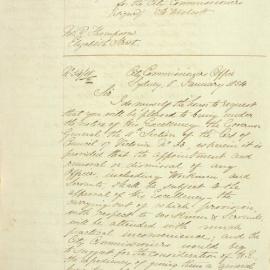 for the City Commissioners
Signed
Mr. R. Thompson
Elizabeth Street
City Commissioners Office
Sydney, January 1854
Sir
I do myself the honor to request
that you will be pleased to bring under
the notice of His Excellency the Governor
General the Section of the Act of
Council of Victoria No. wherein it is
provided that the appointment and
removal or dismissal of every
Officer including Workmen and
Servants, shall be subject to the
approval of His Excellency, the
carrying out of which provision
with respect to Workmen & Servants
will be attended with much
practical inconvenience, and the
City Commissioners would beg
to submit for the consideration of H.E.
the expediency of giving them a general